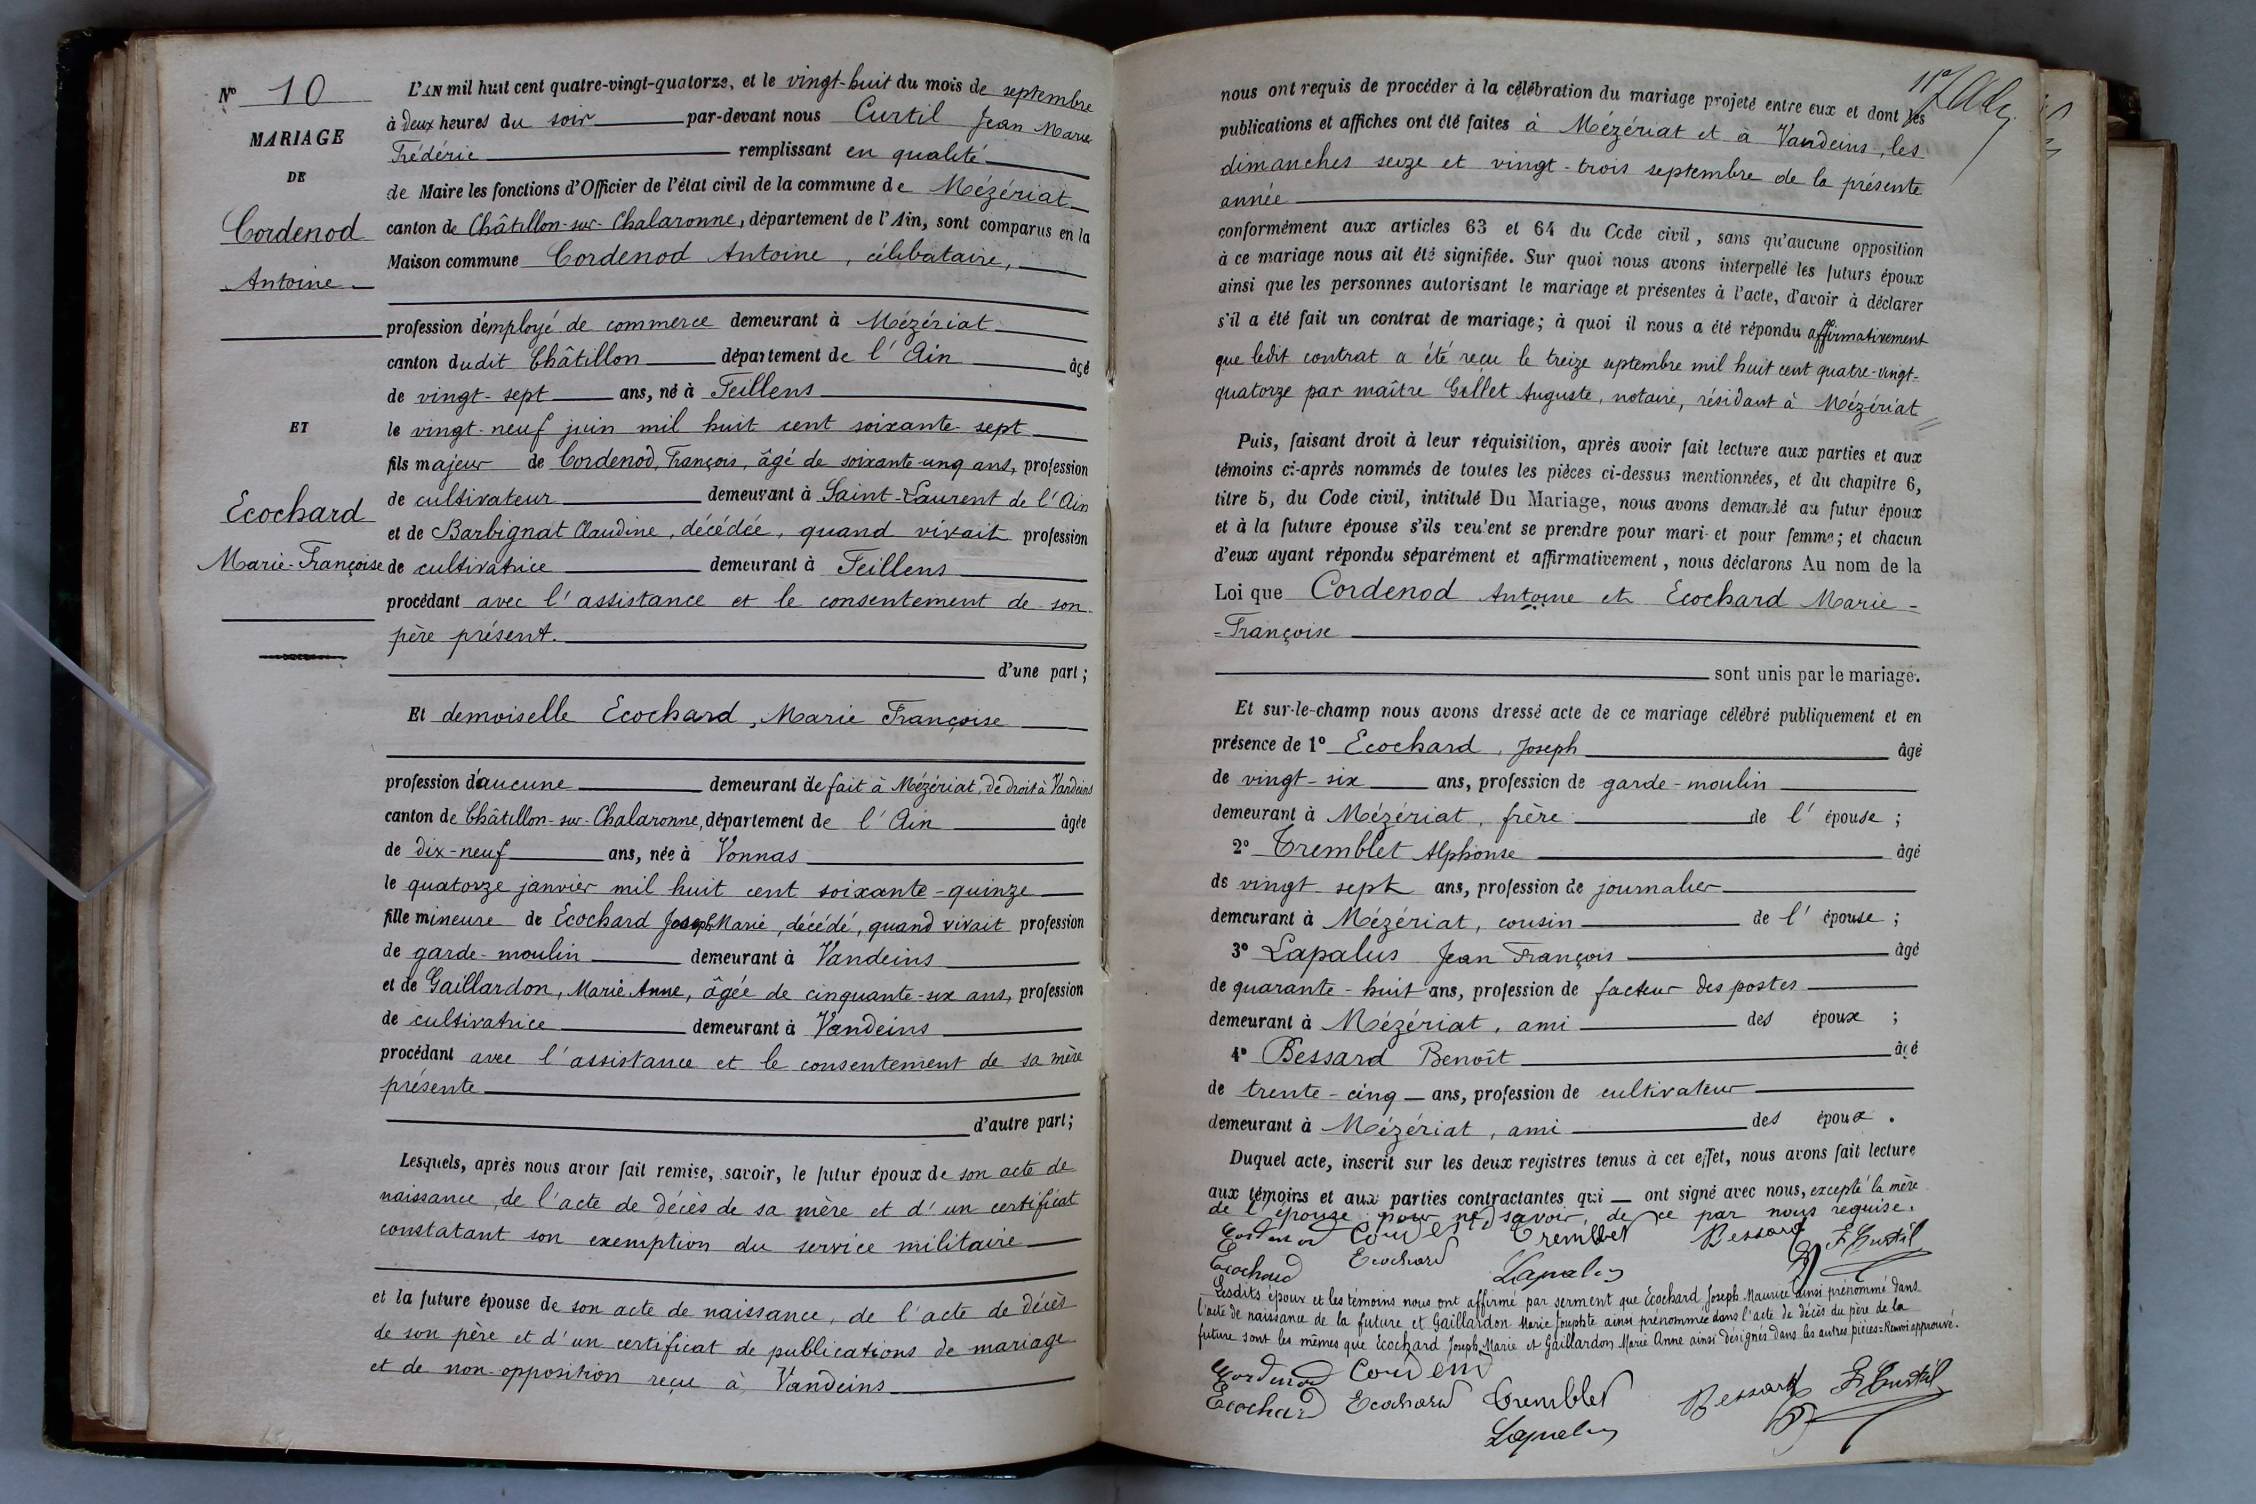 N° 10
MARIAGE
DE
Cordenod
Antoine
ET
Ecochard
Marie-Françoise
L'AN mil huit cent quatre-vingt-quatorze, et le vingt-huit du mois de septembre
à deux heures du soir par-devant nous Curtil Jean Marie
Frédéric remplissant en qualité
de Maire les fonctions d'Officier de l'état civil de la commune de Mézériat
canton de Châtillon-sur-Chalaronne, département de l'Ain, sont comparus en la
Maison commune Cordenod Antoine, célibataire,
profession d'employé de commerce demeurant à Mézériat
canton dudit Châtillon département de l'Ain âgé
de vingt-sept ans, né à Feillens
le vingt-neuf juin mil huit cent soixante-sept
fils majeur de Cordenod, François, âgé de soixante-cinq ans, profession
de cultivateur demeurant à Saint-Laurent de l'Ain
et de Barbignat Claudine, décédée, quand vivait profession
de cultivatrice demeurant à Feillens
procédant avec l'assistance et le consentement de son
père présent.
d'une part;
Et demoiselle Ecochard, Marie Françoise
profession d'aucune demeurant de fait à Mézériat, de droit à Vandeins
canton de Châtillon-sur-Chalaronne, département de l'Ain âgée
de dix-neuf ans, née à Vonnas
le quatorze janvier mil huit cent soixante-quinze
fille mineure de Ecochard Joseph Marie, décédé, quand vivait profession
de garde-moulin demeurant à Vandeins
et de Gaillardon, Marie Anne, âgée de cinquante-six ans, profession
de cultivatrice demeurant à Vandeins
procédant avec l'assistance et le consentement de sa mère
présente
d'autre part;
Lesquels, après nous avoir fait remise, savoir, le futur époux de son acte de
naissance, de l'acte de décès de sa mère et d'un certificat
constatant son exemption du service militaire
et la future épouse de son acte de naissance, de l'acte de décès
de son père et d'un certificat de publications de mariage
et de non-opposition reçu à Vandeins
nous ont requis de procéder à la célébration du mariage projeté entre eux et dont les
publications et affiches ont été faites à Mézériat et à Vandeins, les
dimanches seize et vingt-trois septembre de la présente
année
conformément aux articles 63 et 64 du Code civil, sans qu'aucune opposition
à ce mariage nous ait été signifiée. Sur quoi nous avons interpellé les futurs époux
ainsi que les personnes autorisant le mariage et présentes à l'acte, d'avoir à déclarer
s'il a été fait un contrat de mariage; à quoi il nous a été répondu affirmativement
que ledit contrat a été reçu le treize septembre mil huit cent quatre-vingt-
quatorze par maître Gillet Auguste, notaire, résidant à Mézériat
Puis, faisant droit à leur réquisition, après avoir fait lecture aux parties et aux
témoins ci-après nommés de toutes les pièces ci-dessus mentionnées, et du chapitre 6,
titre 5, du Code civil, intitulé Du Mariage, nous avons demandé au futur époux
et à la future épouse s'ils veulent se prendre pour mari et pour femme; et chacun
d'eux ayant répondu séparément et affirmativement, nous déclarons Au nom de la
Loi que Cordenod Antoine et Ecochard Marie-
-Françoise
sont unis par le mariage.
Et sur-le-champ nous avons dressé acte de ce mariage célébré publiquement et en
présence de 1° Ecochard, Joseph âgé
de vingt-six ans, profession de garde-moulin
demeurant à Mézériat, frère de l'épouse;
2° Tremblet Alphonse âgé
de vingt sept ans, profession de journalier
demeurant à Mézériat, cousin de l'épouse;
3° Lapalus Jean François âgé
de quarante-huit ans, profession de facteur des postes
demeurant à Mézériat, ami des époux;
4° Bessard Benoît âgé
de trente-cinq ans, profession de cultivateur
demeurant à Mézériat, ami des époux.
Duquel acte, inscrit sur les deux registres tenus à cet effet, nous avons fait lecture
aux témoins et aux parties contractantes qui ont signé avec nous, excepté la mère
de l'épouse pour ne savoir, de ce par nous requise.
Cordenod Tremblet Bessard F Curtil
Ecochard Ecochard Lapalus
Lesdits époux et les témoins nous ont affirmé par serment que Ecochard Joseph Maurice ainsi prénommé dans
l'acte de naissance de la future et Gaillardon Marie Josephte ainsi prénommée dans l'acte de décès du père de la
future sont les mêmes que Ecochard Joseph Marie et Gaillardon Marie Anne ainsi désignés dans les autres pièces = Renvoi approuvé.
Cordenod
Ecochard Ecochard Tremblet Bessard F Curtil
Lapalus